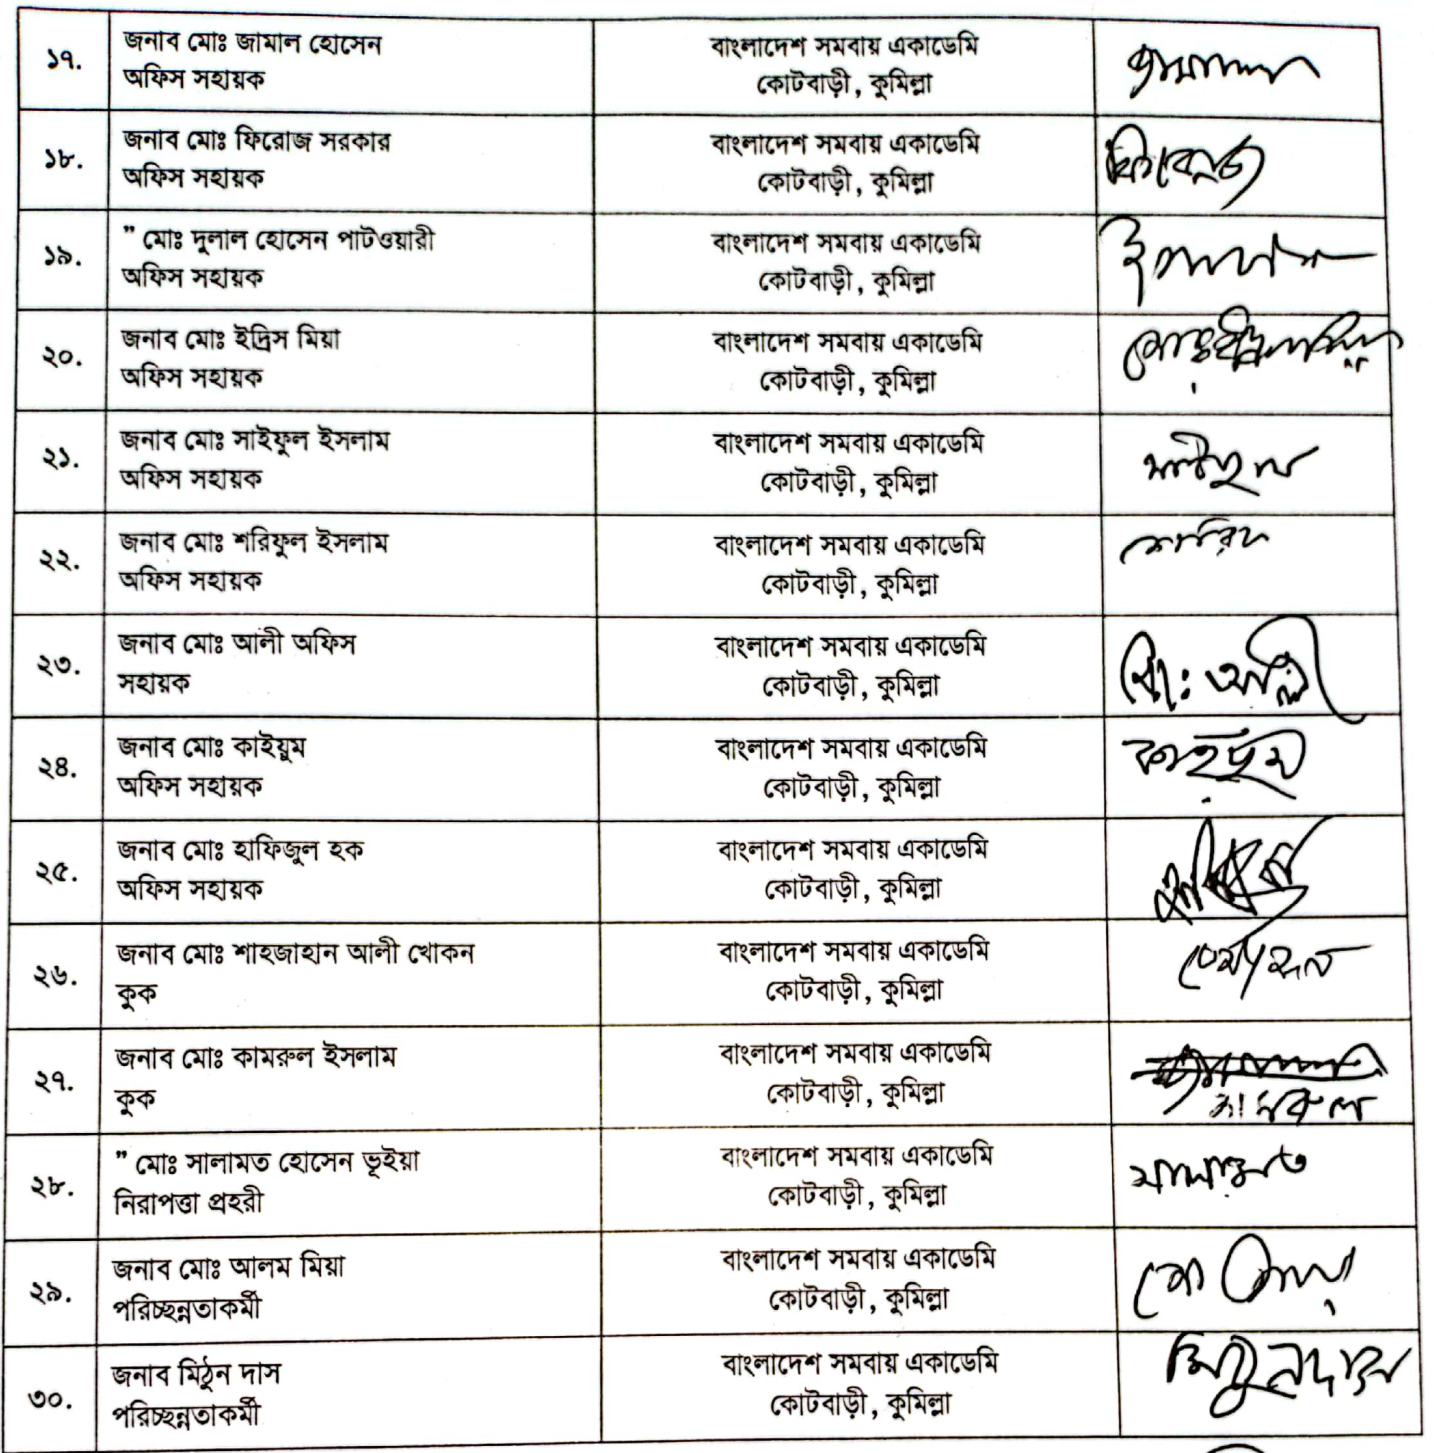 ১৭.
জনাব মোঃ জামাল হোসেন
অফিস সহায়ক
বাংলাদেশ সমবায় একাডেমি
কোটবাড়ী, কুমিল্লা
১৮.
জনাব মোঃ ফিরোজ সরকার
অফিস সহায়ক
বাংলাদেশ সমবায় একাডেমি
কোটবাড়ী, কুমিল্লা
ফিরোজ
১৯.
" মোঃ দুলাল হোসেন পাটওয়ারী
অফিস সহায়ক
বাংলাদেশ সমবায় একাডেমি
কোটবাড়ী, কুমিল্লা
২০.
জনাব মোঃ ইদ্রিস মিয়া
অফিস সহায়ক
বাংলাদেশ সমবায় একাডেমি
কোটবাড়ী, কুমিল্লা
২১.
জনাব মোঃ সাইফুল ইসলাম
অফিস সহায়ক
বাংলাদেশ সমবায় একাডেমি
কোটবাড়ী, কুমিল্লা
২২.
জনাব মোঃ শরিফুল ইসলাম
অফিস সহায়ক
বাংলাদেশ সমবায় একাডেমি
কোটবাড়ী, কুমিল্লা
২৩.
জনাব মোঃ আলী অফিস
সহায়ক
বাংলাদেশ সমবায় একাডেমি
কোটবাড়ী, কুমিল্লা
মো: আলী
২৪.
জনাব মোঃ কাইয়ুম
অফিস সহায়ক
বাংলাদেশ সমবায় একাডেমি
কোটবাড়ী, কুমিল্লা
কাইয়ুম
২৫.
জনাব মোঃ হাফিজুল হক
অফিস সহায়ক
বাংলাদেশ সমবায় একাডেমি
কোটবাড়ী, কুমিল্লা
২৬.
জনাব মোঃ শাহজাহান আলী খোকন
কুক
বাংলাদেশ সমবায় একাডেমি
কোটবাড়ী, কুমিল্লা
২৭.
জনাব মোঃ কামরুল ইসলাম
কুক
বাংলাদেশ সমবায় একাডেমি
কোটবাড়ী, কুমিল্লা
কামরুল
২৮.
" মোঃ সালামত হোসেন ভূইয়া
নিরাপত্তা প্রহরী
বাংলাদেশ সমবায় একাডেমি
কোটবাড়ী, কুমিল্লা
সালামত
২৯.
জনাব মোঃ আলম মিয়া
পরিচ্ছন্নতাকর্মী
বাংলাদেশ সমবায় একাডেমি
কোটবাড়ী, কুমিল্লা
৩০.
জনাব মিঠুন দাস
পরিচ্ছন্নতাকর্মী
বাংলাদেশ সমবায় একাডেমি
কোটবাড়ী, কুমিল্লা
মিঠুন দাস